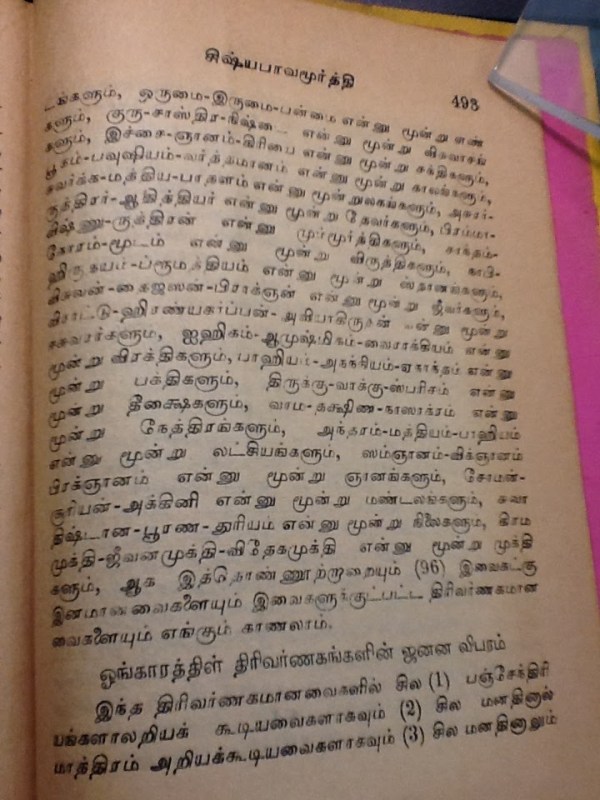 சிஷ்யபாவமூர்த்தி
493
டங்களும், ஒருமை-இருமை-பன்மை என்னு மூன்று எண்
களும், குரு-சாஸ்திர-நிஷ்டை என்னு மூன்று விசுவாசங்
களும், இச்சை-ஞானம்-கிரியை என்னு மூன்று சக்திகளும்,
பூதம்-பவுஷியம்-வர்த்தமானம் என்னு மூன்று காலங்களும்,
சுவர்க்க-மத்திய-பாதளம் என்னு மூன்றுலகங்களும், அசுரர்-
ருத்திரர்-ஆதித்தியர் என்னு மூன்று தேவர்களும், பிரம்மா-
விஷ்ணு-ருத்திரன் என்னு மும்மூர்த்திகளும், சாந்தம்-
கோரம்-மூடம் என்னு மூன்று விருத்திகளும், நாபி-
ஹிருதயம்-ப்ரூமத்தியம் என்னு மூன்று ஸ்தானங்களும்,
விசுவன்-தைஜஸன்-பிராக்ஞன் என்னு மூன்று ஜீவர்களும்,
விராட்டு-ஹிரண்யகர்ப்பன்-அவியாகிருதன் என்னு மூன்று
ஈசுவரர்களும், ஐஹிகம்-ஆமுஷ்மிகம்-வைராக்கியம் என்னு
மூன்று விரக்திகளும், பாஹியம்-அநந்நியம்-ஏகாந்தம் என்னு
மூன்று பக்திகளும், திருக்கு-வாக்கு-ஸ்பரிசம் என்னு
மூன்று தீக்ஷைகளும், வாம-தக்ஷிண-நாஸாக்ரம் என்னு
மூன்று நேத்திரங்களும், அந்தரம்-மத்தியம்-பாஹியம்
என்னு மூன்று லட்சியங்களும், ஸம்ஞானம்-விக்ஞானம்
பிரக்ஞானம் என்னு மூன்று ஞானங்களும், சோமன்-
சூரியன்-அக்கினி என்னு மூன்று மண்டலங்களும், சுவா
திஷ்டான-பூரண-துரியம் என்னு மூன்று நிலைகளும், கிரம
முக்தி-ஜீவனமுக்தி-விதேகமுக்தி என்னு மூன்று முக்தி
களும், ஆக இத்தொண்ணூற்றாறையும் (96) இவைகட்கு
இனமானவைகளையும் இவைகளுக்குட்பட்ட திரிவர்ணகமான
வைகளையும் எங்கும் காணலாம்.
ஓங்காரத்திள் திரிவர்ணகங்களின் ஜனன விபரம்
இந்த திரிவர்ணகமானவைகளில் சில (1) பஞ்சேந்திரி
யங்களாலறியக் கூடியவைகளாகவும் (2) சில மனதினால்
மாத்திரம் அறியக்கூடியவைகளாகவும் (3) சில மனதினாலும்